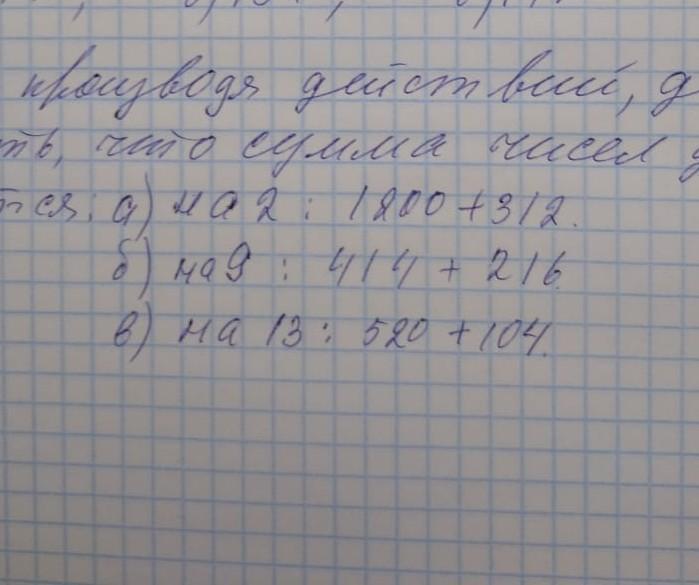 производя действий, д
ть, что сумма чисел д
тся: а) на 2 : 1200 + 312.
б) на 9 : 414 + 216.
в) на 13 : 520 + 104.